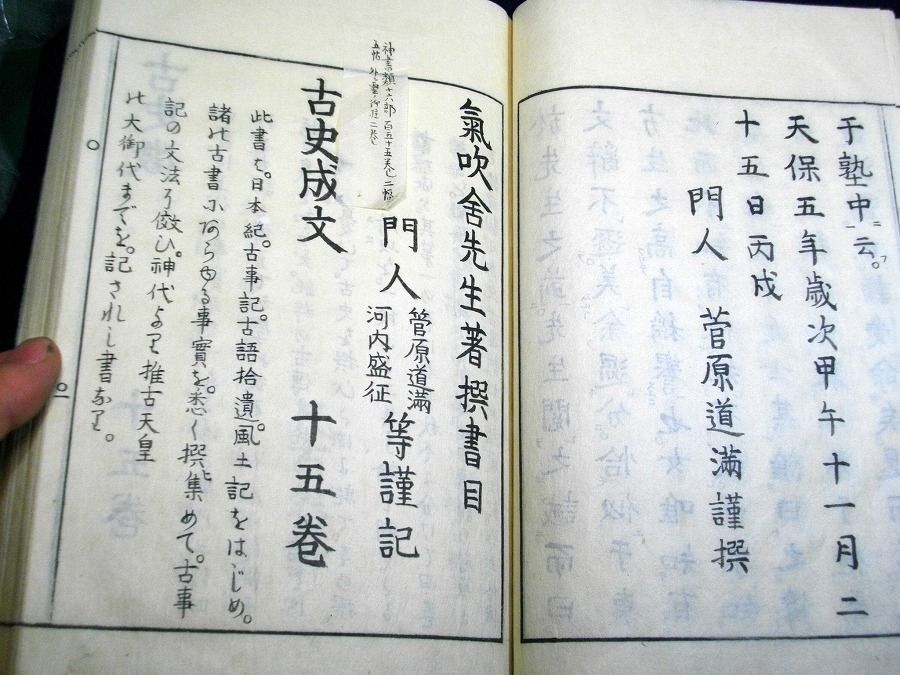 于塾中云。
天保五年歳次甲午十一月二
十五日丙戌
門人 菅原道滿謹撰
氣吹舍先生著撰書目
門人 菅原道滿 河内盛征 等謹記
古史成文 十五巻
此書ハ。日本紀。古事記。古語拾遺。風土記をはじめ。
諸の古書にあらゆる事實を。悉く撰集めて。古事
記の文法に倣ひ。神代より推古天皇
の大御代までを。記されし書なり。
神書類十六部百五十五巻二幅